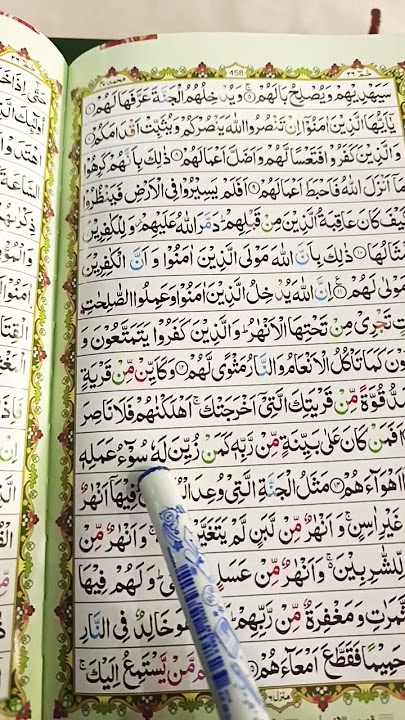 458
سَيَهْدِيْهِمْ وَيُصْلِحُ بَالَهُمْ ۵ وَيُدْخِلُهُمُ الْجَنَّةَ عَرَّفَهَا لَهُمْ ۶
يٰۤاَيُّهَا الَّذِيْنَ اٰمَنُوْۤا اِنْ تَنْصُرُوا اللّٰهَ يَنْصُرْكُمْ وَيُثَبِّتْ اَقْدَامَكُمْ ۷
وَالَّذِيْنَ كَفَرُوْا فَتَعْسًا لَّهُمْ وَاَضَلَّ اَعْمَالَهُمْ ۸ ذٰلِكَ بِاَنَّهُمْ كَرِهُوْا
مَاۤ اَنْزَلَ اللّٰهُ فَاَحْبَطَ اَعْمَالَهُمْ ۹ اَفَلَمْ يَسِيْرُوْا فِى الْاَرْضِ فَيَنْظُرُوْا
كَيْفَ كَانَ عَاقِبَةُ الَّذِيْنَ مِنْ قَبْلِهِمْ ؕ دَمَّرَ اللّٰهُ عَلَيْهِمْ ؗ وَلِلْكٰفِرِيْنَ
اَمْثَالُهَا ۱۰ ذٰلِكَ بِاَنَّ اللّٰهَ مَوْلَى الَّذِيْنَ اٰمَنُوْا وَاَنَّ الْكٰفِرِيْنَ
مَوْلٰى لَهُمْ ۱۱ اِنَّ اللّٰهَ يُدْخِلُ الَّذِيْنَ اٰمَنُوْا وَعَمِلُوا الصّٰلِحٰتِ
تَجْرِىْ مِنْ تَحْتِهَا الْاَنْهٰرُ ؕ وَالَّذِيْنَ كَفَرُوْا يَتَمَتَّعُوْنَ وَ
كَمَا تَاْكُلُ الْاَنْعَامُ وَالنَّارُ مَثْوًى لَّهُمْ ۱۲ وَكَاَيِّنْ مِّنْ قَرْيَةٍ
قُوَّةً مِّنْ قَرْيَتِكَ الَّتِىْۤ اَخْرَجَتْكَ ۚ اَهْلَكْنٰهُمْ فَلَا نَاصِرَ
اَفَمَنْ كَانَ عَلٰى بَيِّنَةٍ مِّنْ رَّبِّهٖ كَمَنْ زُيِّنَ لَهٗ سُوْٓءُ عَمَلِهٖ
اَهْوَآءَهُمْ ۱۴ مَثَلُ الْجَنَّةِ الَّتِىْ وُعِدَ فِيْهَاۤ اَنْهٰرٌ
غَيْرِ اٰسِنٍ ۚ وَاَنْهٰرٌ مِّنْ لَّبَنٍ لَّمْ يَتَغَيَّرْ وَاَنْهٰرٌ مِّنْ
لِّلشّٰرِبِيْنَ ۚ وَاَنْهٰرٌ مِّنْ عَسَلٍ ؕ وَلَهُمْ فِيْهَا
الثَّمَرٰتِ وَمَغْفِرَةٌ مِّنْ رَّبِّهِمْ ؕ هُوَ خَالِدٌ فِى النَّارِ
حَمِيْمًا فَقَطَّعَ اَمْعَآءَهُمْ ۱۵ مَّنْ يَّسْتَمِعُ اِلَيْكَ ۚ